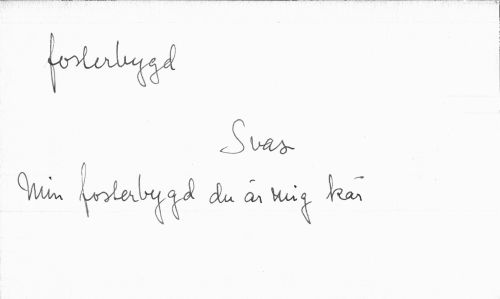 fosterbygd
Svas
Min fosterbygd du är mig kär